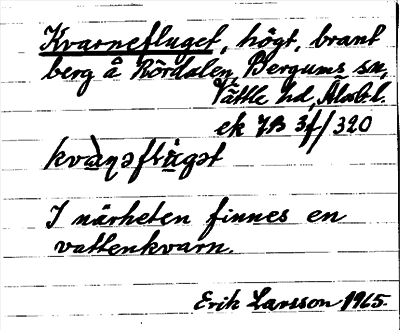 Kvarnefluget, högt, brant
berg å Rördalen, Bergums sn,
Vättle hd, Älvsb. l.
ek 7B 3f/320
kvàṇəflu̇gət
I närheten finnes en
vattenkvarn.
Erik Larsson 1965.